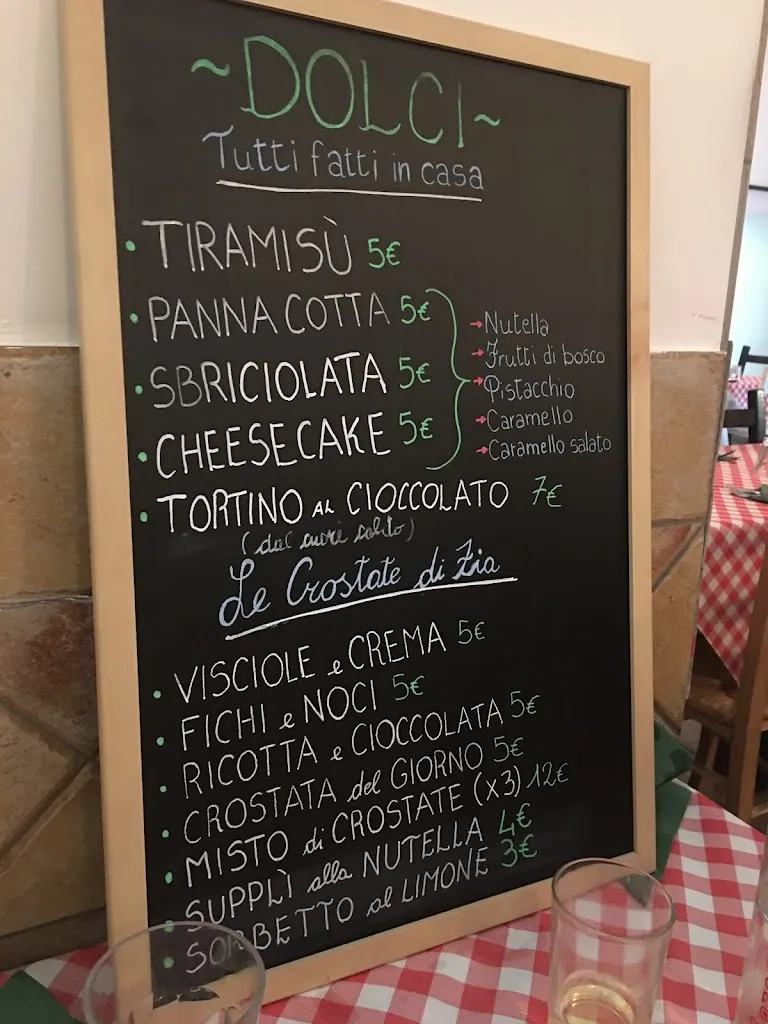 ~DOLCI~
Tutti fatti in casa
• TIRAMISÙ 5€
• PANNA COTTA 5€
• SBRICIOLATA 5€
• CHEESECAKE 5€
→ Nutella
→ Frutti di bosco
→ Pistacchio
→ Caramello
→ Caramello salato
• TORTINO AL CIOCCOLATO 7€
(dal cuore caldo)
Le Crostate di Zia
• VISCIOLE e CREMA 5€
• FICHI e NOCI 5€
• RICOTTA e CIOCCOLATA 5€
• CROSTATA del GIORNO 5€
• MISTO di CROSTATE (x3) 12€
• SUPPLÌ alla NUTELLA 4€
• SORBETTO al LIMONE 3€